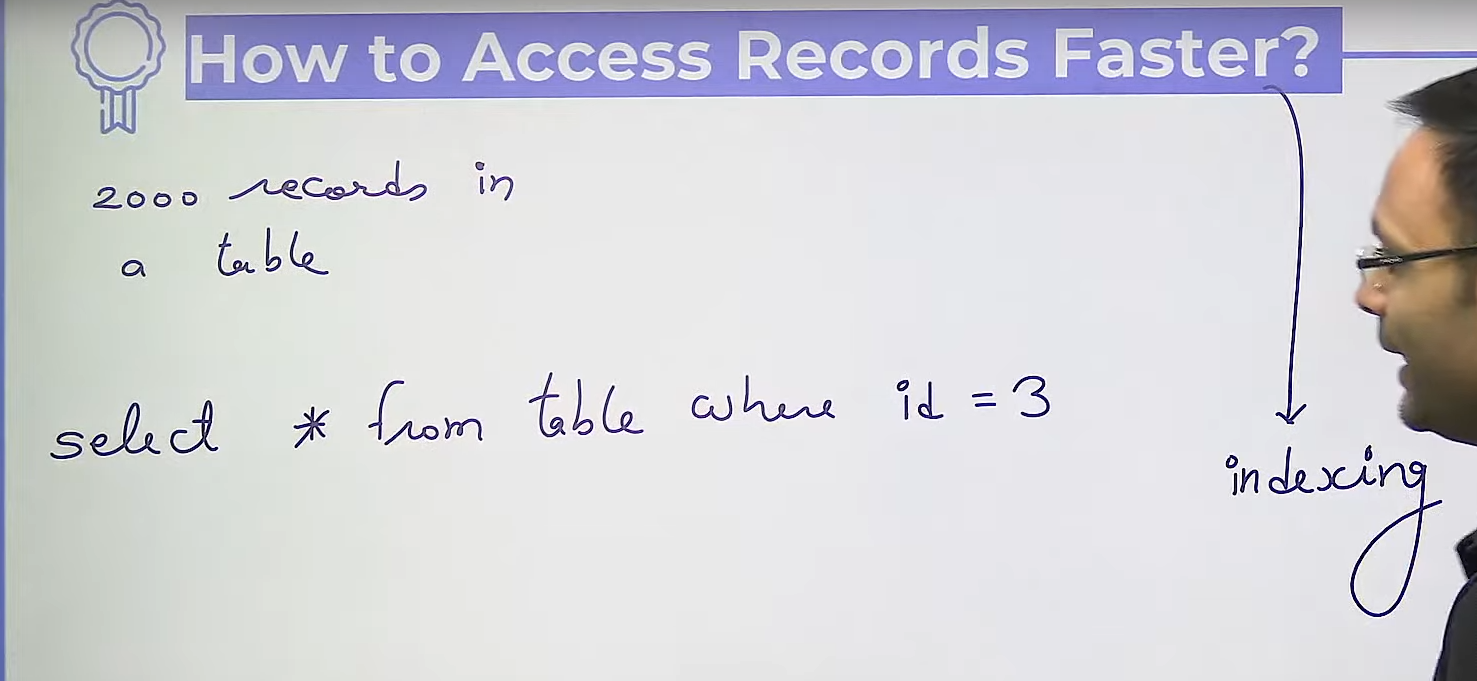 How to Access Records Faster?
2000 records in
a table
select * from table where id = 3
indexing